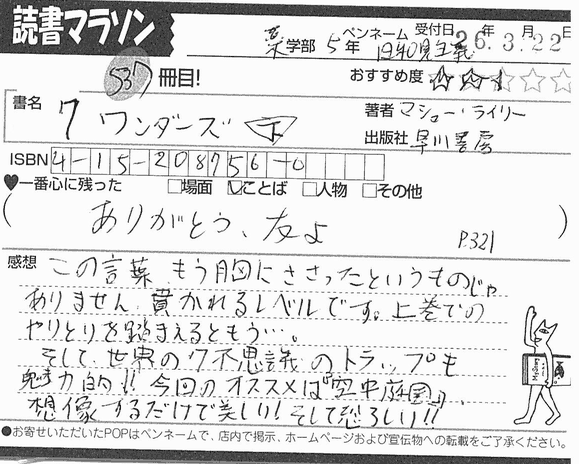 読書マラソン
薬学部 5年 ペンネーム 日和見主義 受付日 26.年3.月22日
537冊目! おすすめ度 ☆☆☆☆☆
書名 7ワンダーズ 下 著者 マシュー・ライリー
出版社 早川書房
ISBN 4-15-208756-0
♥一番心に残った □場面 ☑ことば □人物 □その他
( ありがとう、友よ P.321 )
感想 この言葉 もう胸にささったというものじゃ
ありません、貫かれるレベルです。上巻での
やりとりを踏まえるともう…。
そして、世界の7不思議のトラップも
魅力的!! 今回のオススメは『空中庭園』、
想像するだけで美しい! そして恐ろしい!!
●お寄せいただいたPOPはペンネームで、店内で掲示、ホームページおよび宣伝物への転載をご了承ください。